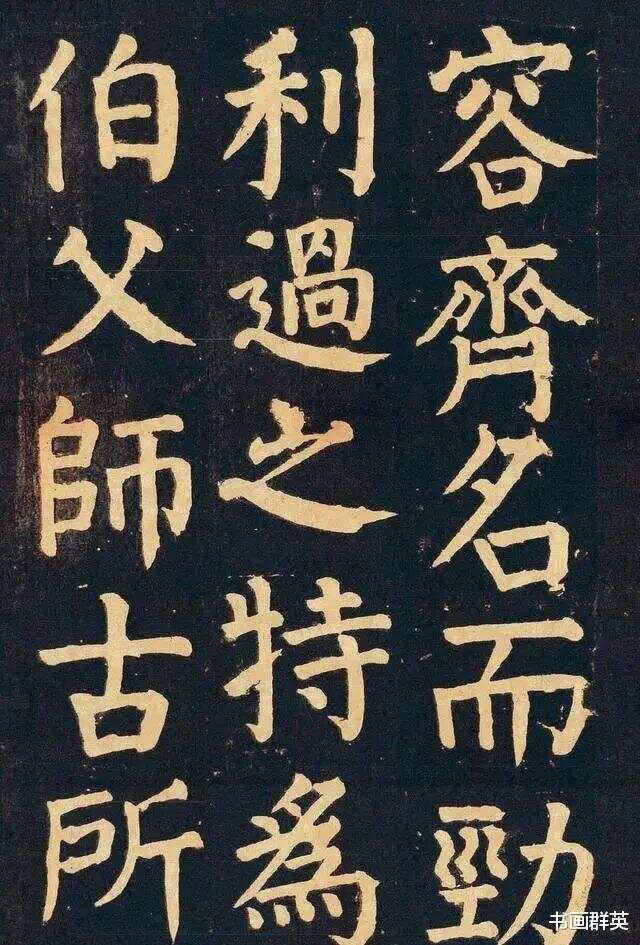 容齊名而勁
利過之特為
伯父師古所
书画群英